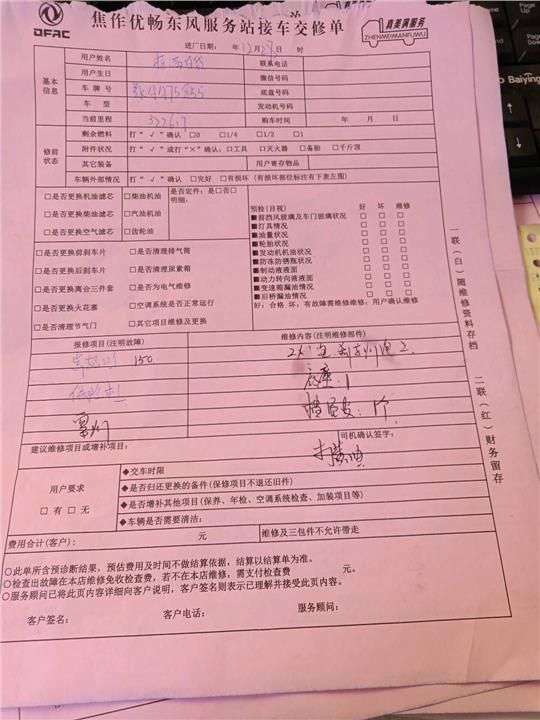 DFAC
焦作优畅东风服务站接车交修单
真美满服务
ZHENMEIMANFUWU
进厂日期: 年12月28日 时
基本信息
用户姓名 联系电话
用户生日 微信号码
车牌号 底盘号码
车型 发动机号码
当前里程 322617 购车时间 年 月 日
修前状态
剩余燃料 打"√"确认 □0 □1/4 □1/2 □1
附件状况 打"√"或打"×"确认:□工具 □灭火器 □备胎 □千斤顶
其它装备 用户寄存物品
车辆外部情况 打"√"确认 □完好 □有损坏(有损坏部位标注有下表左图)
□是否更换机油滤芯 □柴油机油 是否定件:是□否□
□是否更换柴油滤芯 □汽油机油 明细:
□是否更换空气滤芯 □齿轮油
预检(目视) 好 坏 维修
■前挡风玻璃及车门玻璃状况 □ □ □
■灯具情况 □ □ □
■油量状况 □ □ □
■轮胎状况 □ □ □
■发动机机油状况 □ □ □
■防冻防锈瓶状况 □ □ □
■制动液液面 □ □ □
■动力转向液液面 □ □ □
■变速箱漏油情况 □ □ □
■后桥漏油情况 □ □ □
好:合格 坏:有故障需维修维修:用户确认维修
□是否更换前刹车片 □是否清理排气筒
□是否更换后刹车片 □是否清理尿素箱
□是否更换离合三件套 □是否为电气维修
□是否更换火花塞 □空调系统是否正常运行
□是否清理节气门 □其它项目维修及更换
报修项目(注明故障) 维修内容(注明维修部件)
150
司机确认签字:
建议维修项目或增补项目:
用户要求
□有 □无
◆交车时限
◆是否归还更换的备件(保修项目不退还旧件)
◆是否增补其他项目(保养、年检、空调系统检查、加装项目等)
◆车辆是否需要清洁:
费用合计(客户): 元 维修及三包件不允许带走
○此单所含预诊断结果,预估费用及时间不做结算依据,结算以结算单为准。
○检查出故障在本店维修免收检查费,若不在本店维修,需支付检查费 元。
○服务顾问已将此页内容详细向客户说明,客户签名则表示已理解并接受此页内容。
客户签名: 客户电话: 服务顾问:
一联(白)随维修资料存档
二联(红)财务留存
Baiying